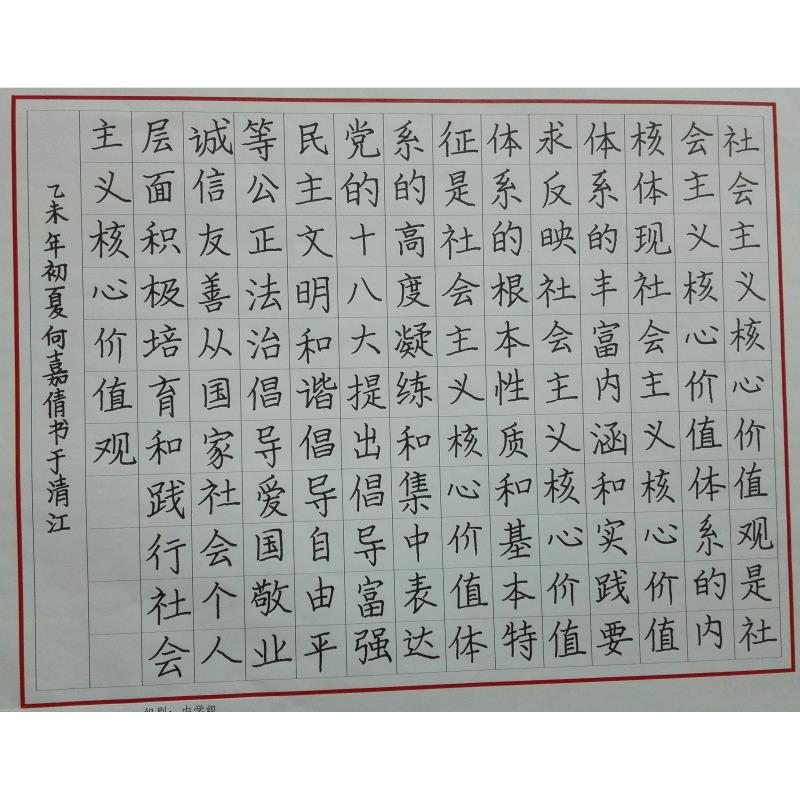 社会主义核心价值观是社
会主义核心价值体系的内
核体现社会主义核心价值
体系的丰富内涵和实践要
求反映社会主义核心价值
体系的根本性质和基本特
征是社会主义核心价值体
系的高度凝练和集中表达
党的十八大提出倡导富强
民主文明和谐倡导自由平
等公正法治倡导爱国敬业
诚信友善从国家社会个人
层面积极培育和践行社会
主义核心价值观
乙未年初夏何嘉倩书于清江
组别：中学组